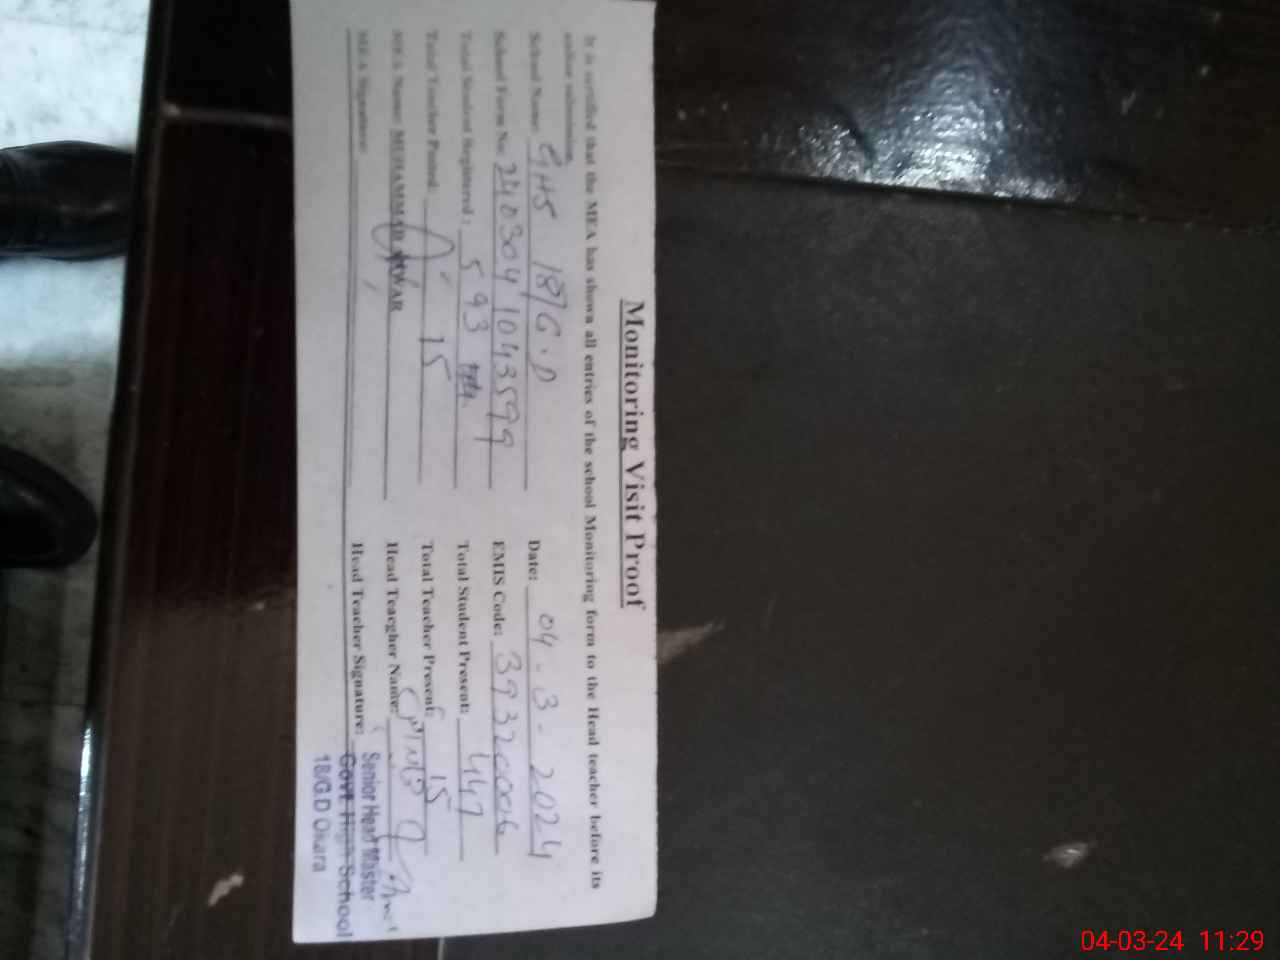 Monitoring Visit Proof
It is certified that the MEA has shown all entries of the school Monitoring form to the Head teacher before its
online submission.
School Name: GHS 18/G.D Date: 04-3-2024
School Form No: 240304 1043599 EMIS Code: 39320006
Total Student Registered: 593 Total Student Present: 447
Total Teacher Posted: 15 Total Teacher Present: 15
MEA Name: MUHAMMAD Head Teacgher Name:
MEA Signature: Head Teacher Signature:
Senior Head Master
Govt High School
18/G.D Okara
04-03-24 11:29